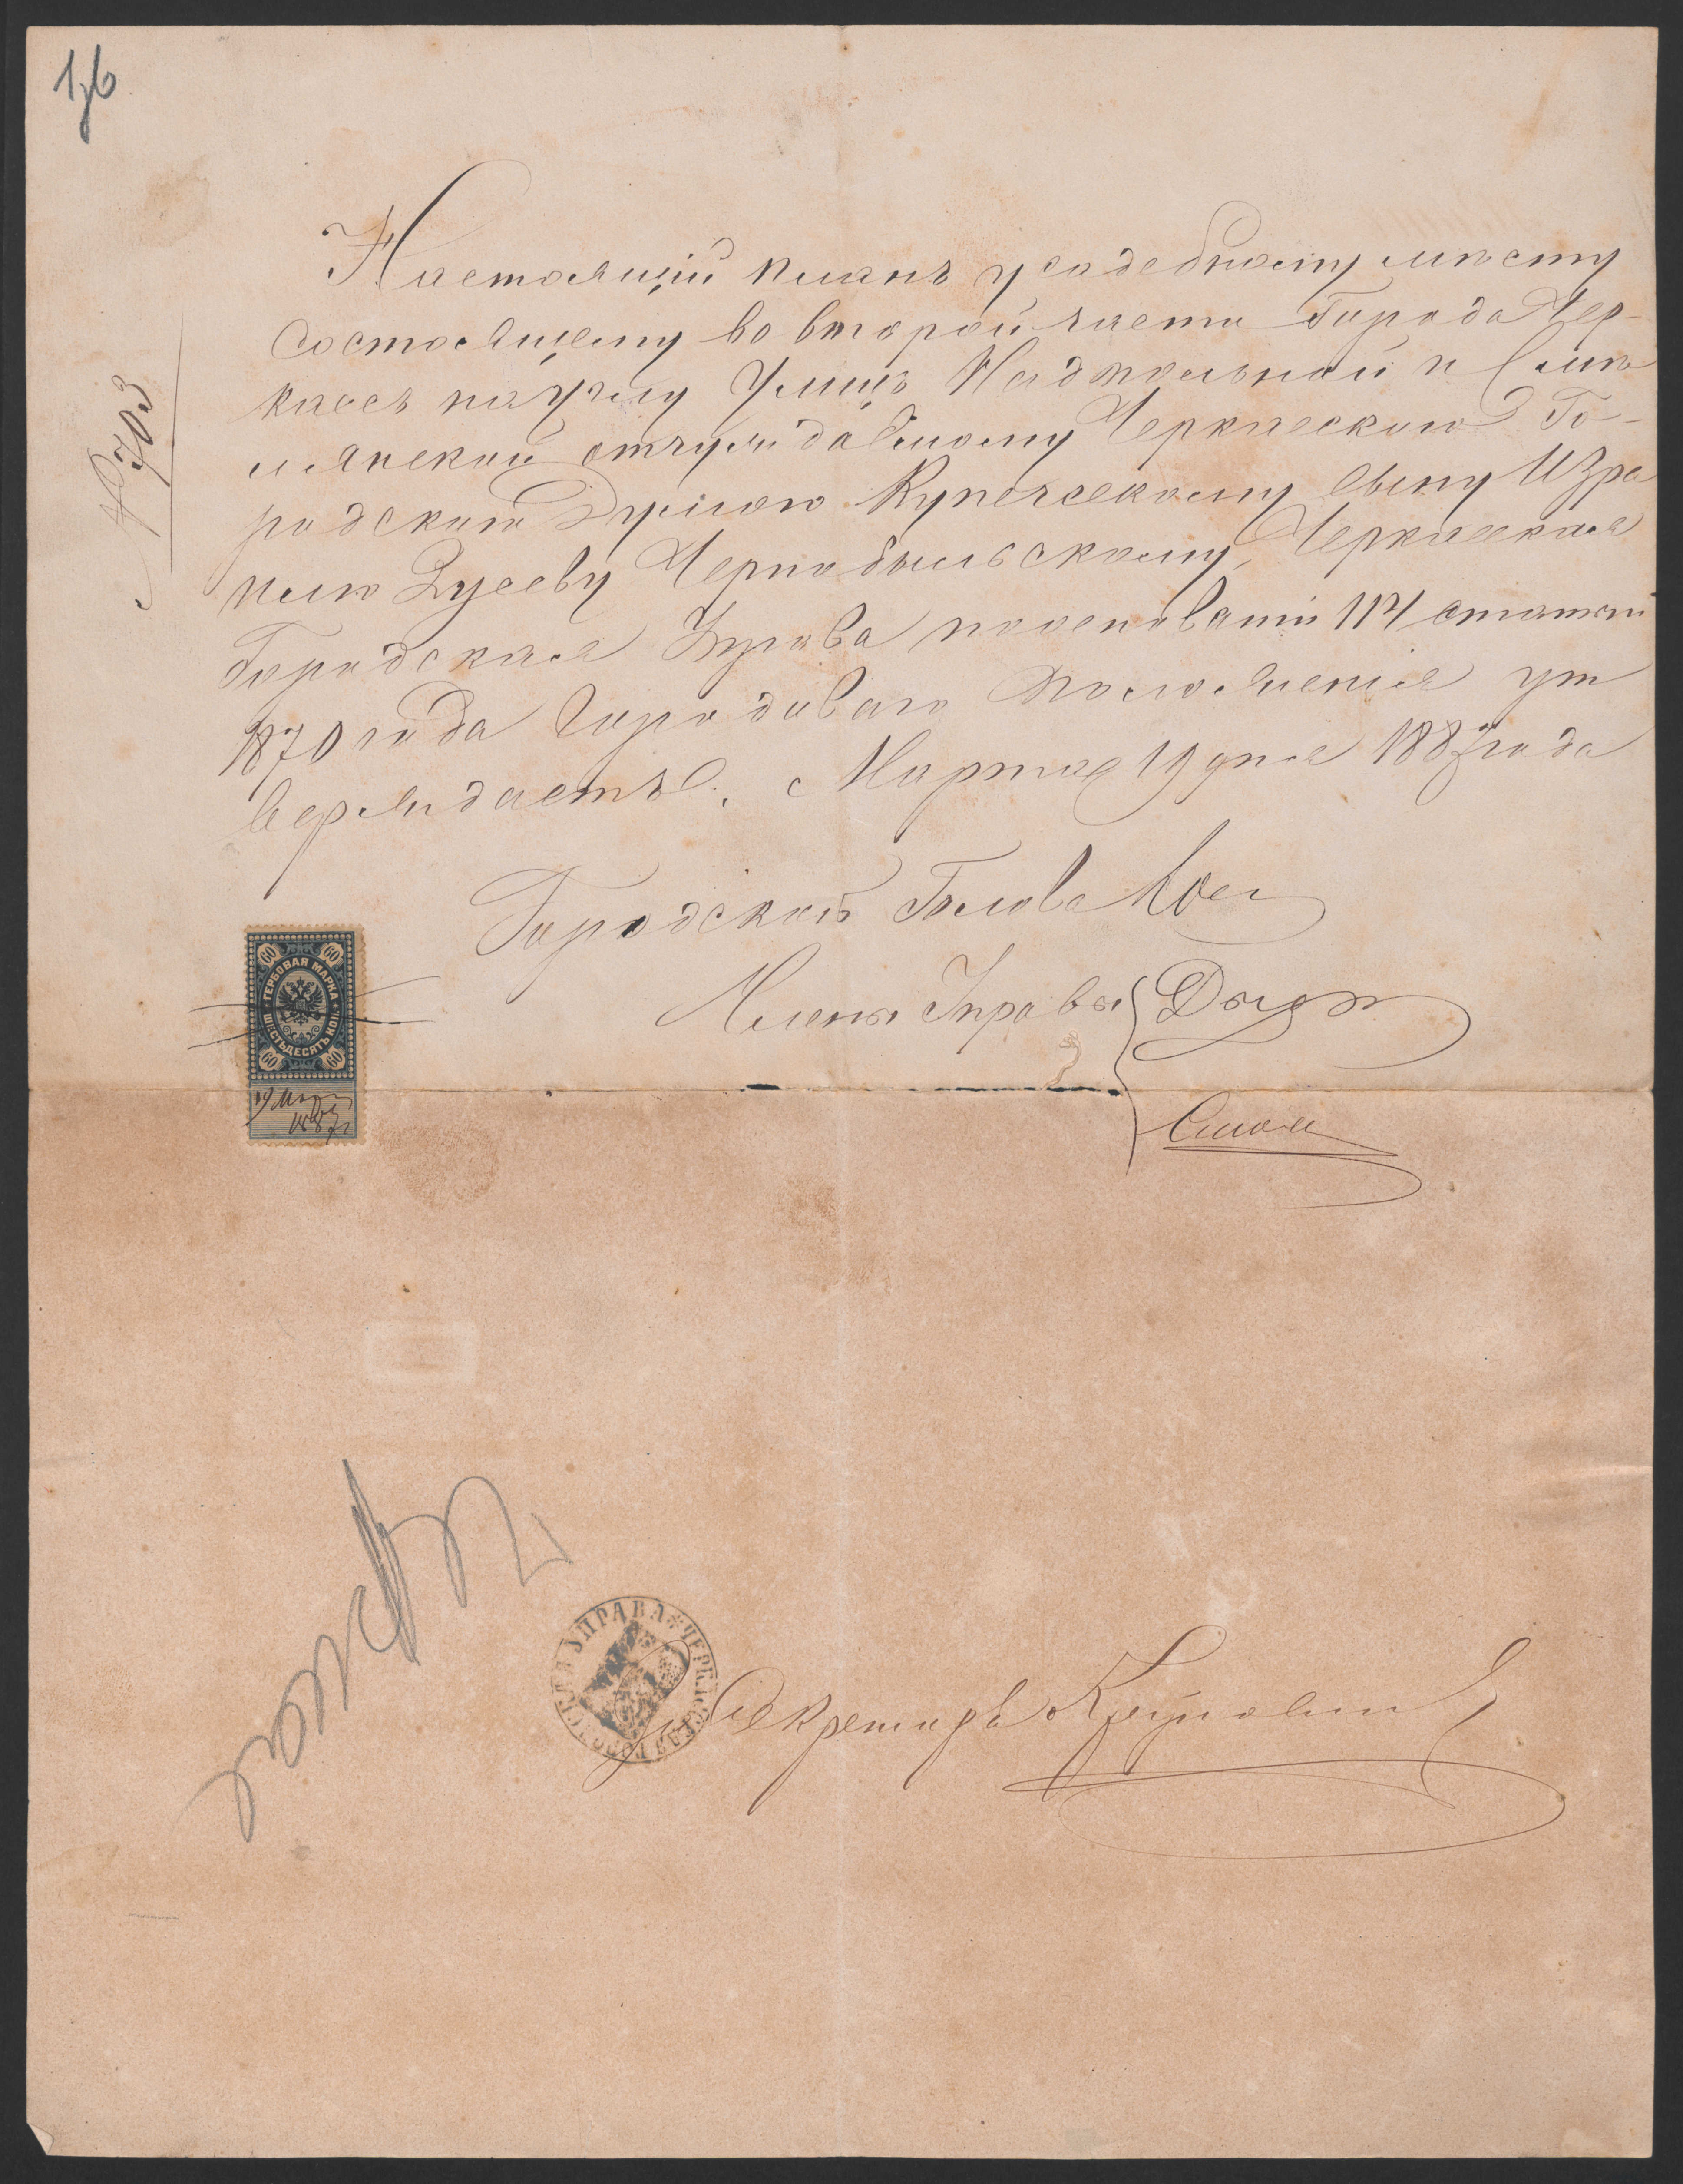 16
№ 703
Настоящій планъ усадебному мѣсту
состоящему во второй части Города Чер-
кассъ на углу Улицъ Надпольной и Смѣ
лянской отчуждаемому Черкасскою Го-
родскою Думою Купеческому сыну Изра
илю Зусеву Чернобыльскому, Черкасская
Городская Управа на основаніи 114 статьи
1870 года Городоваго Положенія ут
верждаетъ. Марта 19 дня 1887 года
Городской Голова
Члены Управы
ГЕРБОВАЯ МАРКА
ШЕСТЬДЕСЯТЪ КОП.
60 60
60 60
19 Мар
1887 г
УПРАВА * ЧЕРКАССКАЯ ГОРОДСКАЯ
Секретарь